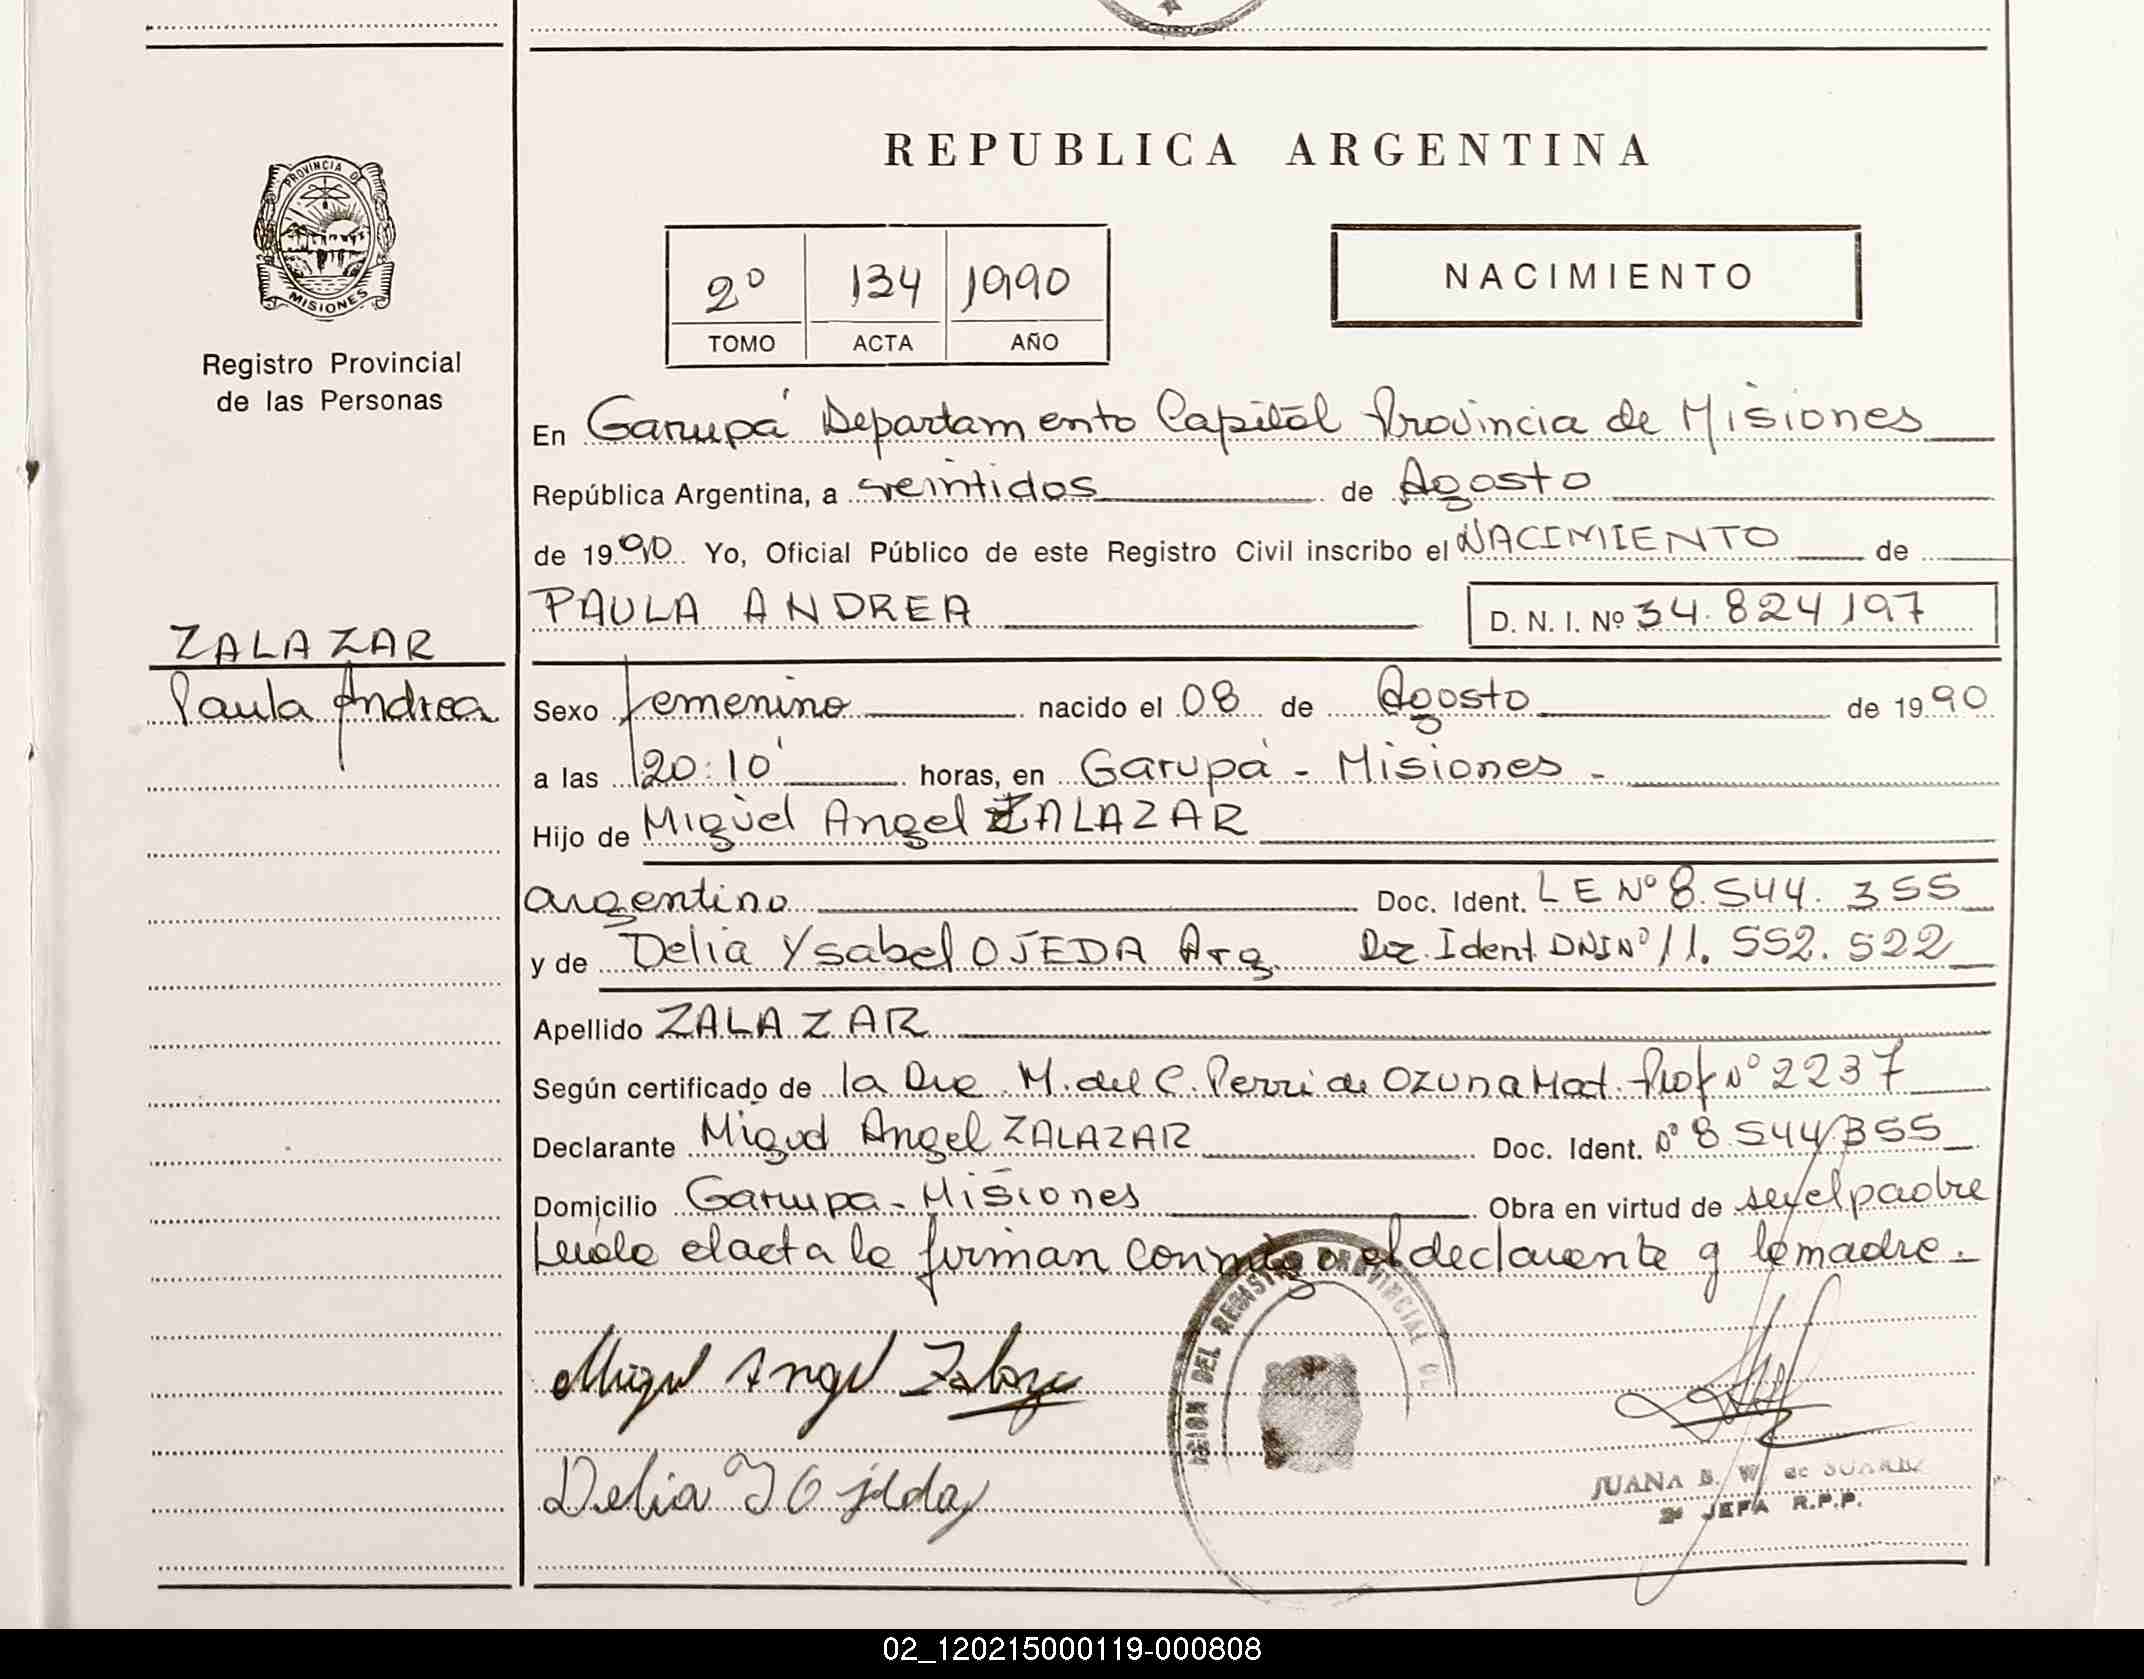 REPUBLICA ARGENTINA
PROVINCIA DE
MISIONES
Registro Provincial
de las Personas
2º 134 1990
TOMO ACTA AÑO
NACIMIENTO
En Garupá Departamento Capital Provincia de Misiones
República Argentina, a veintidos de Agosto
de 1990 Yo, Oficial Público de este Registro Civil inscribo el NACIMIENTO de
PAULA ANDREA D. N. I. Nº 34.824197
ZALAZAR
Paula Andrea
Sexo femenino nacido el 08 de Agosto de 1990
a las 20:10' horas, en Garupá - Misiones -
Hijo de Miguel Angel ZALAZAR
argentino Doc. Ident. LE Nº 8.544.355
y de Delia Ysabel OJEDA Arg. Doc. Ident. DNI Nº 11.552.522
Apellido ZALAZAR
Según certificado de la Dra M. del C. Perri de OZUNA Mat. Prof Nº 2237
Declarante Miguel Angel ZALAZAR Doc. Ident. Nº 8.544.355
Domicilio Garupa - Misiones Obra en virtud de ser el padre
Leida el acta la firman conmigo el declarante y la madre.-
DEL REGISTRO PROVINCIAL DE
Miguel Angel Zalazar
Delia Y Ojeda
JUANA B. W. de SUAREZ
2ª JEFA R.P.P.
02_120215000119-000808